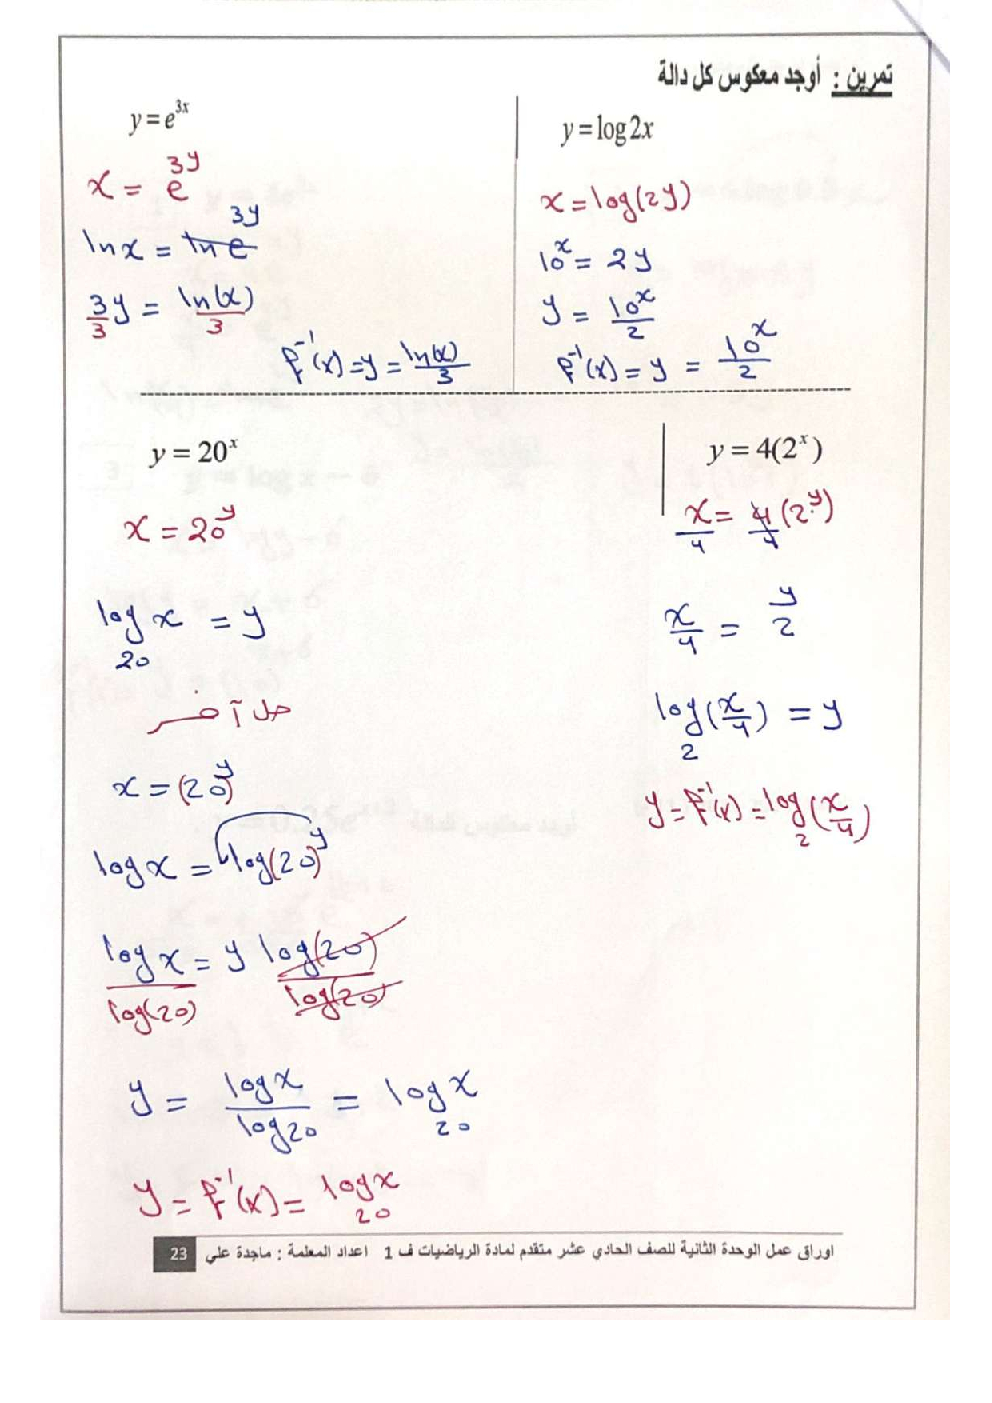 تمرين : أوجد معكوس كل دالة
y = e^{3x}
x = e^{3y}
ln x = ln e^{3y}
3y/3 = ln(x)/3
f^{-1}(x) = y = ln(x)/3
y = log 2x
x = log(2y)
10^x = 2y
y = 10^x/2
f^{-1}(x) = y = 10^x/2
y = 20^x
x = 20^y
log_{20} x = y
حل آخر
x = (20)^y
log x = log(20)^y
log x/log(20) = y log(20)/log(20)
y = log x/log 20 = log_{20} x
y = f^{-1}(x) = log_{20} x
y = 4(2^x)
x/4 = 4/4 (2^y)
x/4 = 2^y
log_2 (x/4) = y
y = f^{-1}(x) = log_2 (x/4)
اوراق عمل الوحدة الثانية للصف الحادي عشر متقدم لمادة الرياضيات ف 1 اعداد المعلمة : ماجدة علي 23